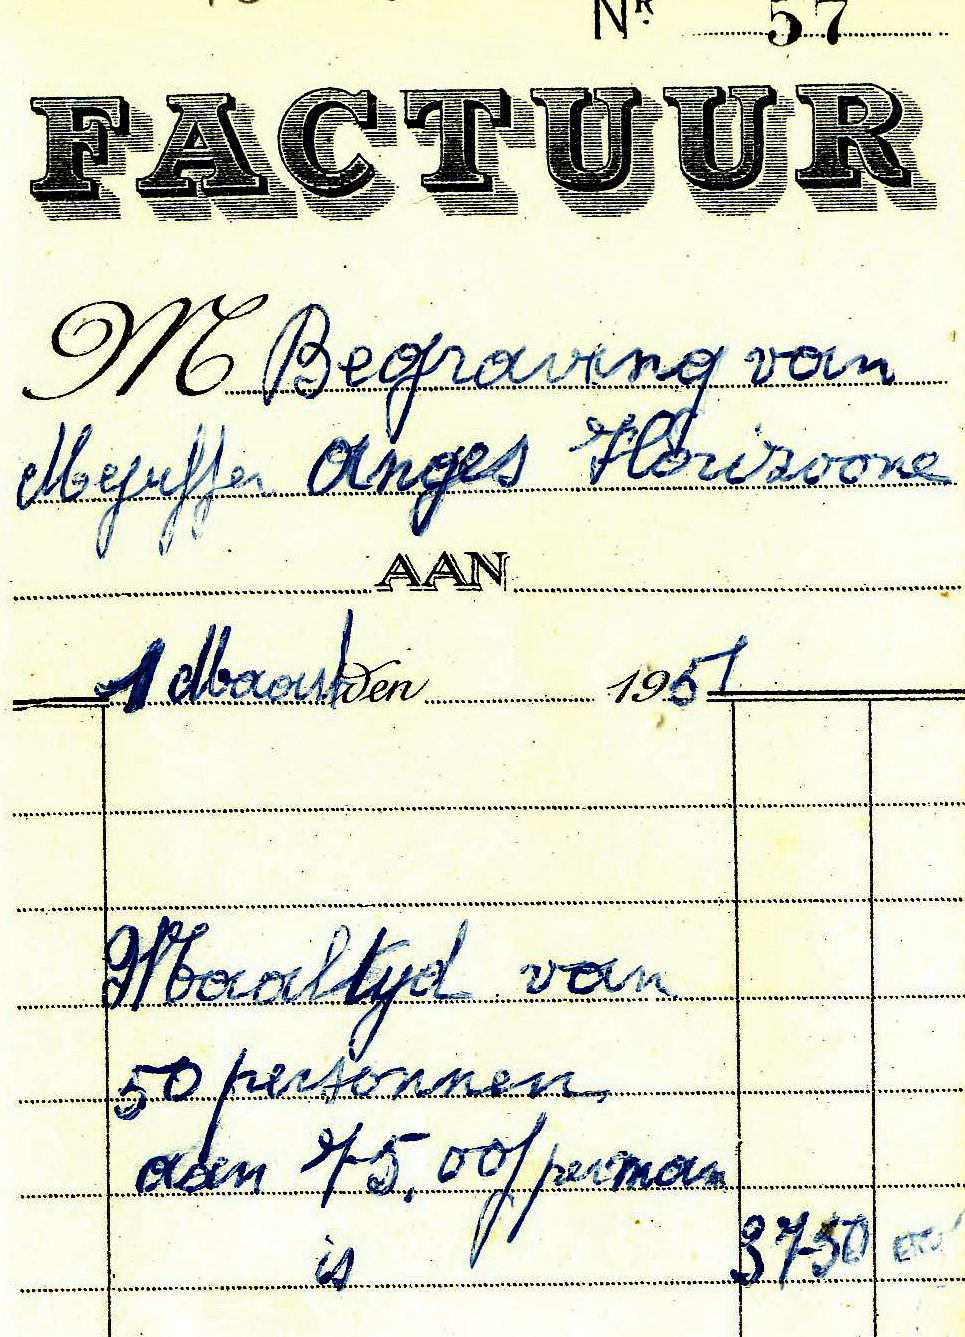 Nr. 57
FACTUUR
M Begraving van
Mejuffer Anges Florizoone
AAN
1 Maart den 1951
Maaltyd van
50 personnen
aan 75.00 f per man
is 3750 00